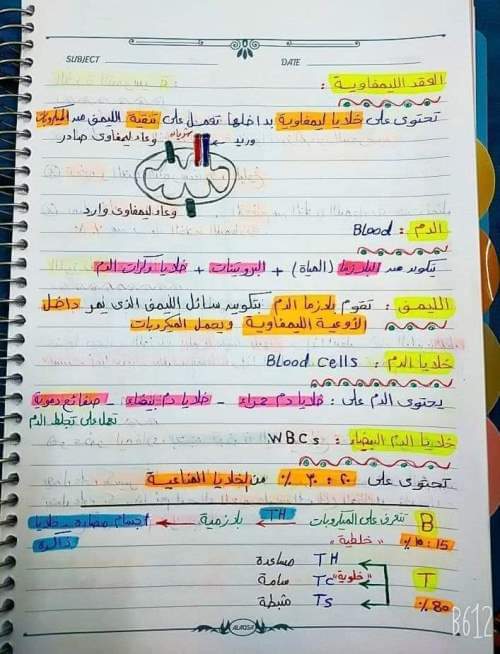 SUBJECT DATE
العقد الليمفاوية :
تحتوى على خلايا ليمفاوية بداخلها تعمل على تنقية الليمف من الميكروبات
وعاء ليمفاوى صادر شريان وريد
وعاء ليمفاوى وارد
الدم : Blood
تكون من البلازما (المياة) + البروتينات + خلايا وكرات الدم
الليمف : تقوم بلازما الدم بتكوين سائل الليمف الذى يمر داخل
الأوعية الليمفاوية ويحمل الميكروبات
خلايا الدم : Blood cells
يحتوى الدم على : خلايا دم حمراء - خلايا دم بيضاء - صفائح دموية
تعمل على تجلط الدم
خلايا الدم البيضاء : W.B.Cs
تحتوى على ٢٠ : ٣٠ % من الخلايا المناعية
B تتعرف على الميكروبات TH بلازمية اجسام مضادة - خلايا
ذاكرة
10 : 15 % "خلطية"
TH مساعدة
T "خلوية" Tc سامة
80 % Ts مثبطة
ALAQSA
B612